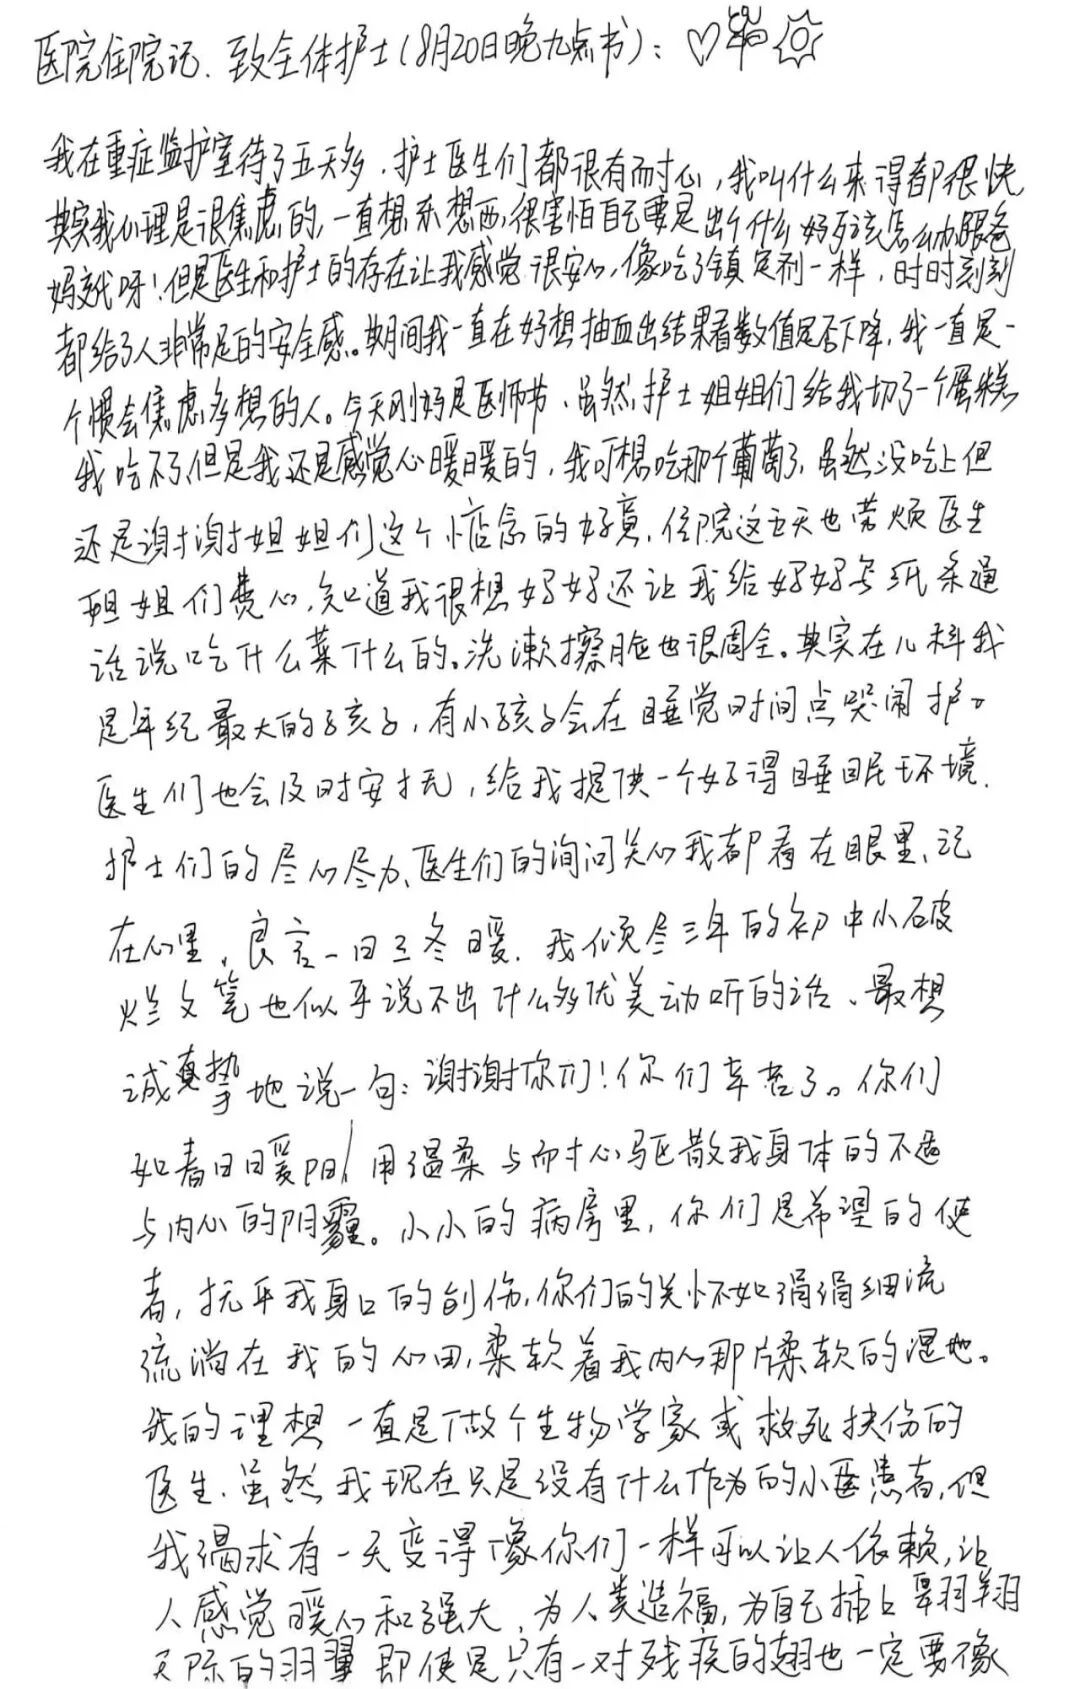 医院住院记.致全体护士(8月20日晚九点书):
我在重症监护室待了五天多.护士医生们都很有耐心,我叫什么来得都很快
其实我心理是很焦虑的,一直想东想西,很害怕自己要是出个什么好歹该怎么办跟爸
妈交代呀!但是医生和护士的存在让我感觉很安心,像吃了镇定剂一样,时时刻刻
都给了人非常足的安全感。期间我一直在好想抽血出结果看数值是否下降,我一直是一
个惯会焦虑多想的人。今天刚好是医师节、虽然护士姐姐们给我切了一个蛋糕
我吃不了,但是我还是感觉心暖暖的,我可想吃那个葡萄了,虽然没吃上但
还是谢谢姐姐们这个惦念的好意,住院这五天也劳烦医生
姐姐们费心,知道我很想妈妈还让我给妈妈写纸条通
话说吃什么菜什么的。洗漱擦脸也很周全。其实在儿科我
是年纪最大的孩子,有小孩子会在睡觉时间点哭闹护士
医生们也会及时安抚,给我提供一个好得睡眠环境.
护士们的尽心尽力、医生们的询问关心我都看在眼里、记
在心里,良言一句三冬暖.我倾尽三年的初中小破
烂文笔也似乎说不出什么多优美动听的话、最想
诚真挚地说一句:谢谢你们!你们辛苦了。你们
如春日暖阳,用温柔与耐心驱散我身体的不适
与内心的阴霾。小小的病房里,你们是希望的使
者,抚平我身口的创伤,你们的关怀如涓涓细流
流淌在我的心田,柔软着我内心那片柔软的湿地。
我的理想一直是做个生物学家或救死扶伤的
医生.虽然我现在只是没有什么作为的小医患者,但
我渴求有一天变得像你们一样可以让人依赖,让
人感觉暖心和强大,为人类造福,为自己插上翱翔
天际的羽翼 即使是只有一对残疾的翅也一定要像